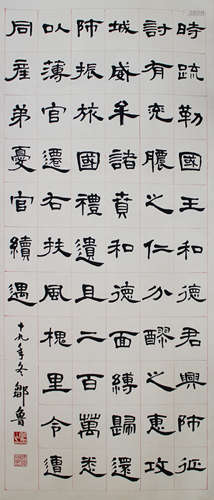 時疏勒國王和德君興師征
討有兗膿之仁分醪之惠攻
城威牟諸賁和德面縛歸還
師振旅國禮遺且二百萬悉
以薄官遷右扶風槐里令遭
同産弟憂官續遇
十九年冬鄒魯